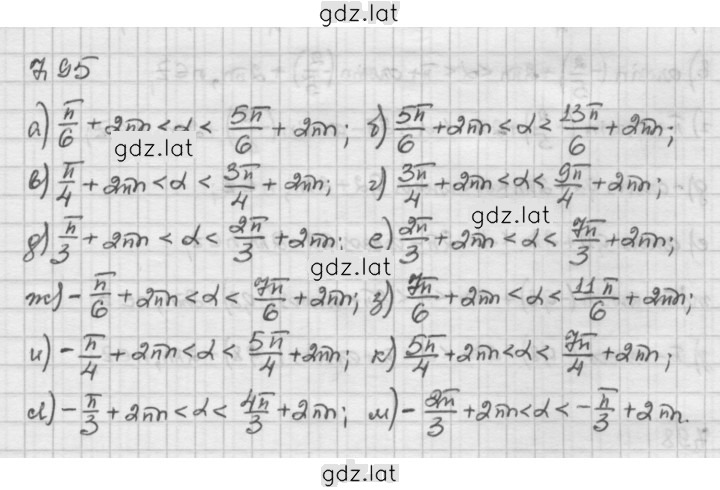 gdz.lat
795
а) π/6 + 2πn < α < 5π/6 + 2πn; б) 5π/6 + 2πn < α < 13π/6 + 2πn;
gdz.lat
в) π/4 + 2πn < α < 3π/4 + 2πn; г) 3π/4 + 2πn < α < 9π/4 + 2πn;
gdz.lat
д) π/3 + 2πn < α < 2π/3 + 2πn; е) 2π/3 + 2πn < α < 7π/3 + 2πn;
gdz.lat
ж) -π/6 + 2πn < α < 7π/6 + 2πn; з) 7π/6 + 2πn < α < 11π/6 + 2πn;
и) -π/4 + 2πn < α < 5π/4 + 2πn; к) 5π/4 + 2πn < α < 7π/4 + 2πn;
л) -π/3 + 2πn < α < 4π/3 + 2πn; м) -2π/3 + 2πn < α < -π/3 + 2πn.
gdz.lat